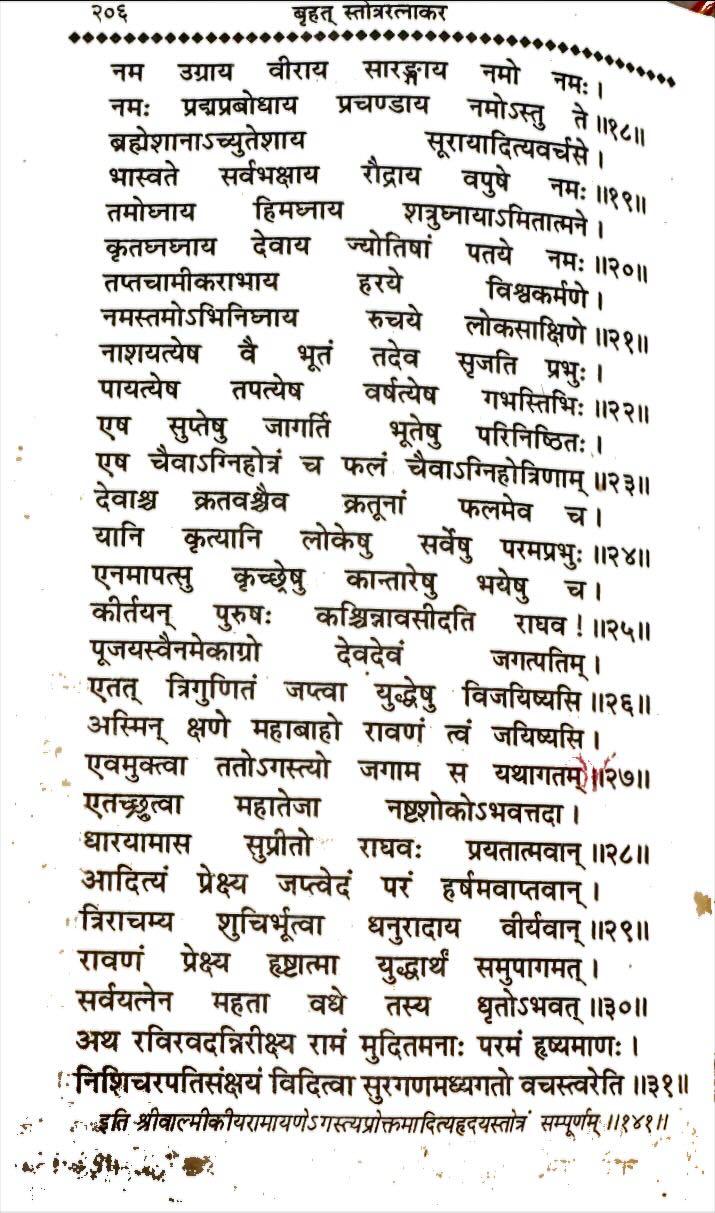 २०६ बृहत् स्तोत्ररत्नाकर
नम उग्राय वीराय सारङ्गाय नमो नमः ।
नमः प्रद्मप्रबोधाय प्रचण्डाय नमोऽस्तु ते ॥१८॥
ब्रह्मेशानाऽच्युतेशाय सूरायादित्यवर्चसे ।
भास्वते सर्वभक्षाय रौद्राय वपुषे नमः ॥१९॥
तमोघ्नाय हिमघ्नाय शत्रुघ्नायाऽमितात्मने ।
कृतघ्नघ्नाय देवाय ज्योतिषां पतये नमः ॥२०॥
तप्तचामीकराभाय हरये विश्वकर्मणे ।
नमस्तमोऽभिनिघ्नाय रुचये लोकसाक्षिणे ॥२१॥
नाशयत्येष वै भूतं तदेव सृजति प्रभुः ।
पायत्येष तपत्येष वर्षत्येष गभस्तिभिः ॥२२॥
एष सुप्तेषु जागर्ति भूतेषु परिनिष्ठितः ।
एष चैवाऽग्निहोत्रं च फलं चैवाऽग्निहोत्रिणाम् ॥२३॥
देवाश्च क्रतवश्चैव क्रतूनां फलमेव च ।
यानि कृत्यानि लोकेषु सर्वेषु परमप्रभुः ॥२४॥
एनमापत्सु कृच्छ्रेषु कान्तारेषु भयेषु च ।
कीर्तयन् पुरुषः कश्चिन्नावसीदति राघव ! ॥२५॥
पूजयस्वैनमेकाग्रो देवदेवं जगत्पतिम् ।
एतत् त्रिगुणितं जप्त्वा युद्धेषु विजयिष्यसि ॥२६॥
अस्मिन् क्षणे महाबाहो रावणं त्वं जयिष्यसि ।
एवमुक्त्वा ततोऽगस्त्यो जगाम स यथागतम् ॥२७॥
एतच्छ्रुत्वा महातेजा नष्टशोकोऽभवत्तदा ।
धारयामास सुप्रीतो राघवः प्रयतात्मवान् ॥२८॥
आदित्यं प्रेक्ष्य जप्त्वेदं परं हर्षमवाप्तवान् ।
त्रिराचम्य शुचिर्भूत्वा धनुरादाय वीर्यवान् ॥२९॥
रावणं प्रेक्ष्य हृष्टात्मा युद्धार्थं समुपागमत् ।
सर्वयत्नेन महता वधे तस्य धृतोऽभवत् ॥३०॥
अथ रविरवदन्निरीक्ष्य रामं मुदितमनाः परमं हृष्यमाणः ।
निशिचरपतिसंक्षयं विदित्वा सुरगणमध्यगतो वचस्त्वरेति ॥३१॥
इति श्रीवाल्मीकीयरामायणेऽगस्त्यप्रोक्तमादित्यहृदयस्तोत्रं सम्पूर्णम् ॥१४१॥